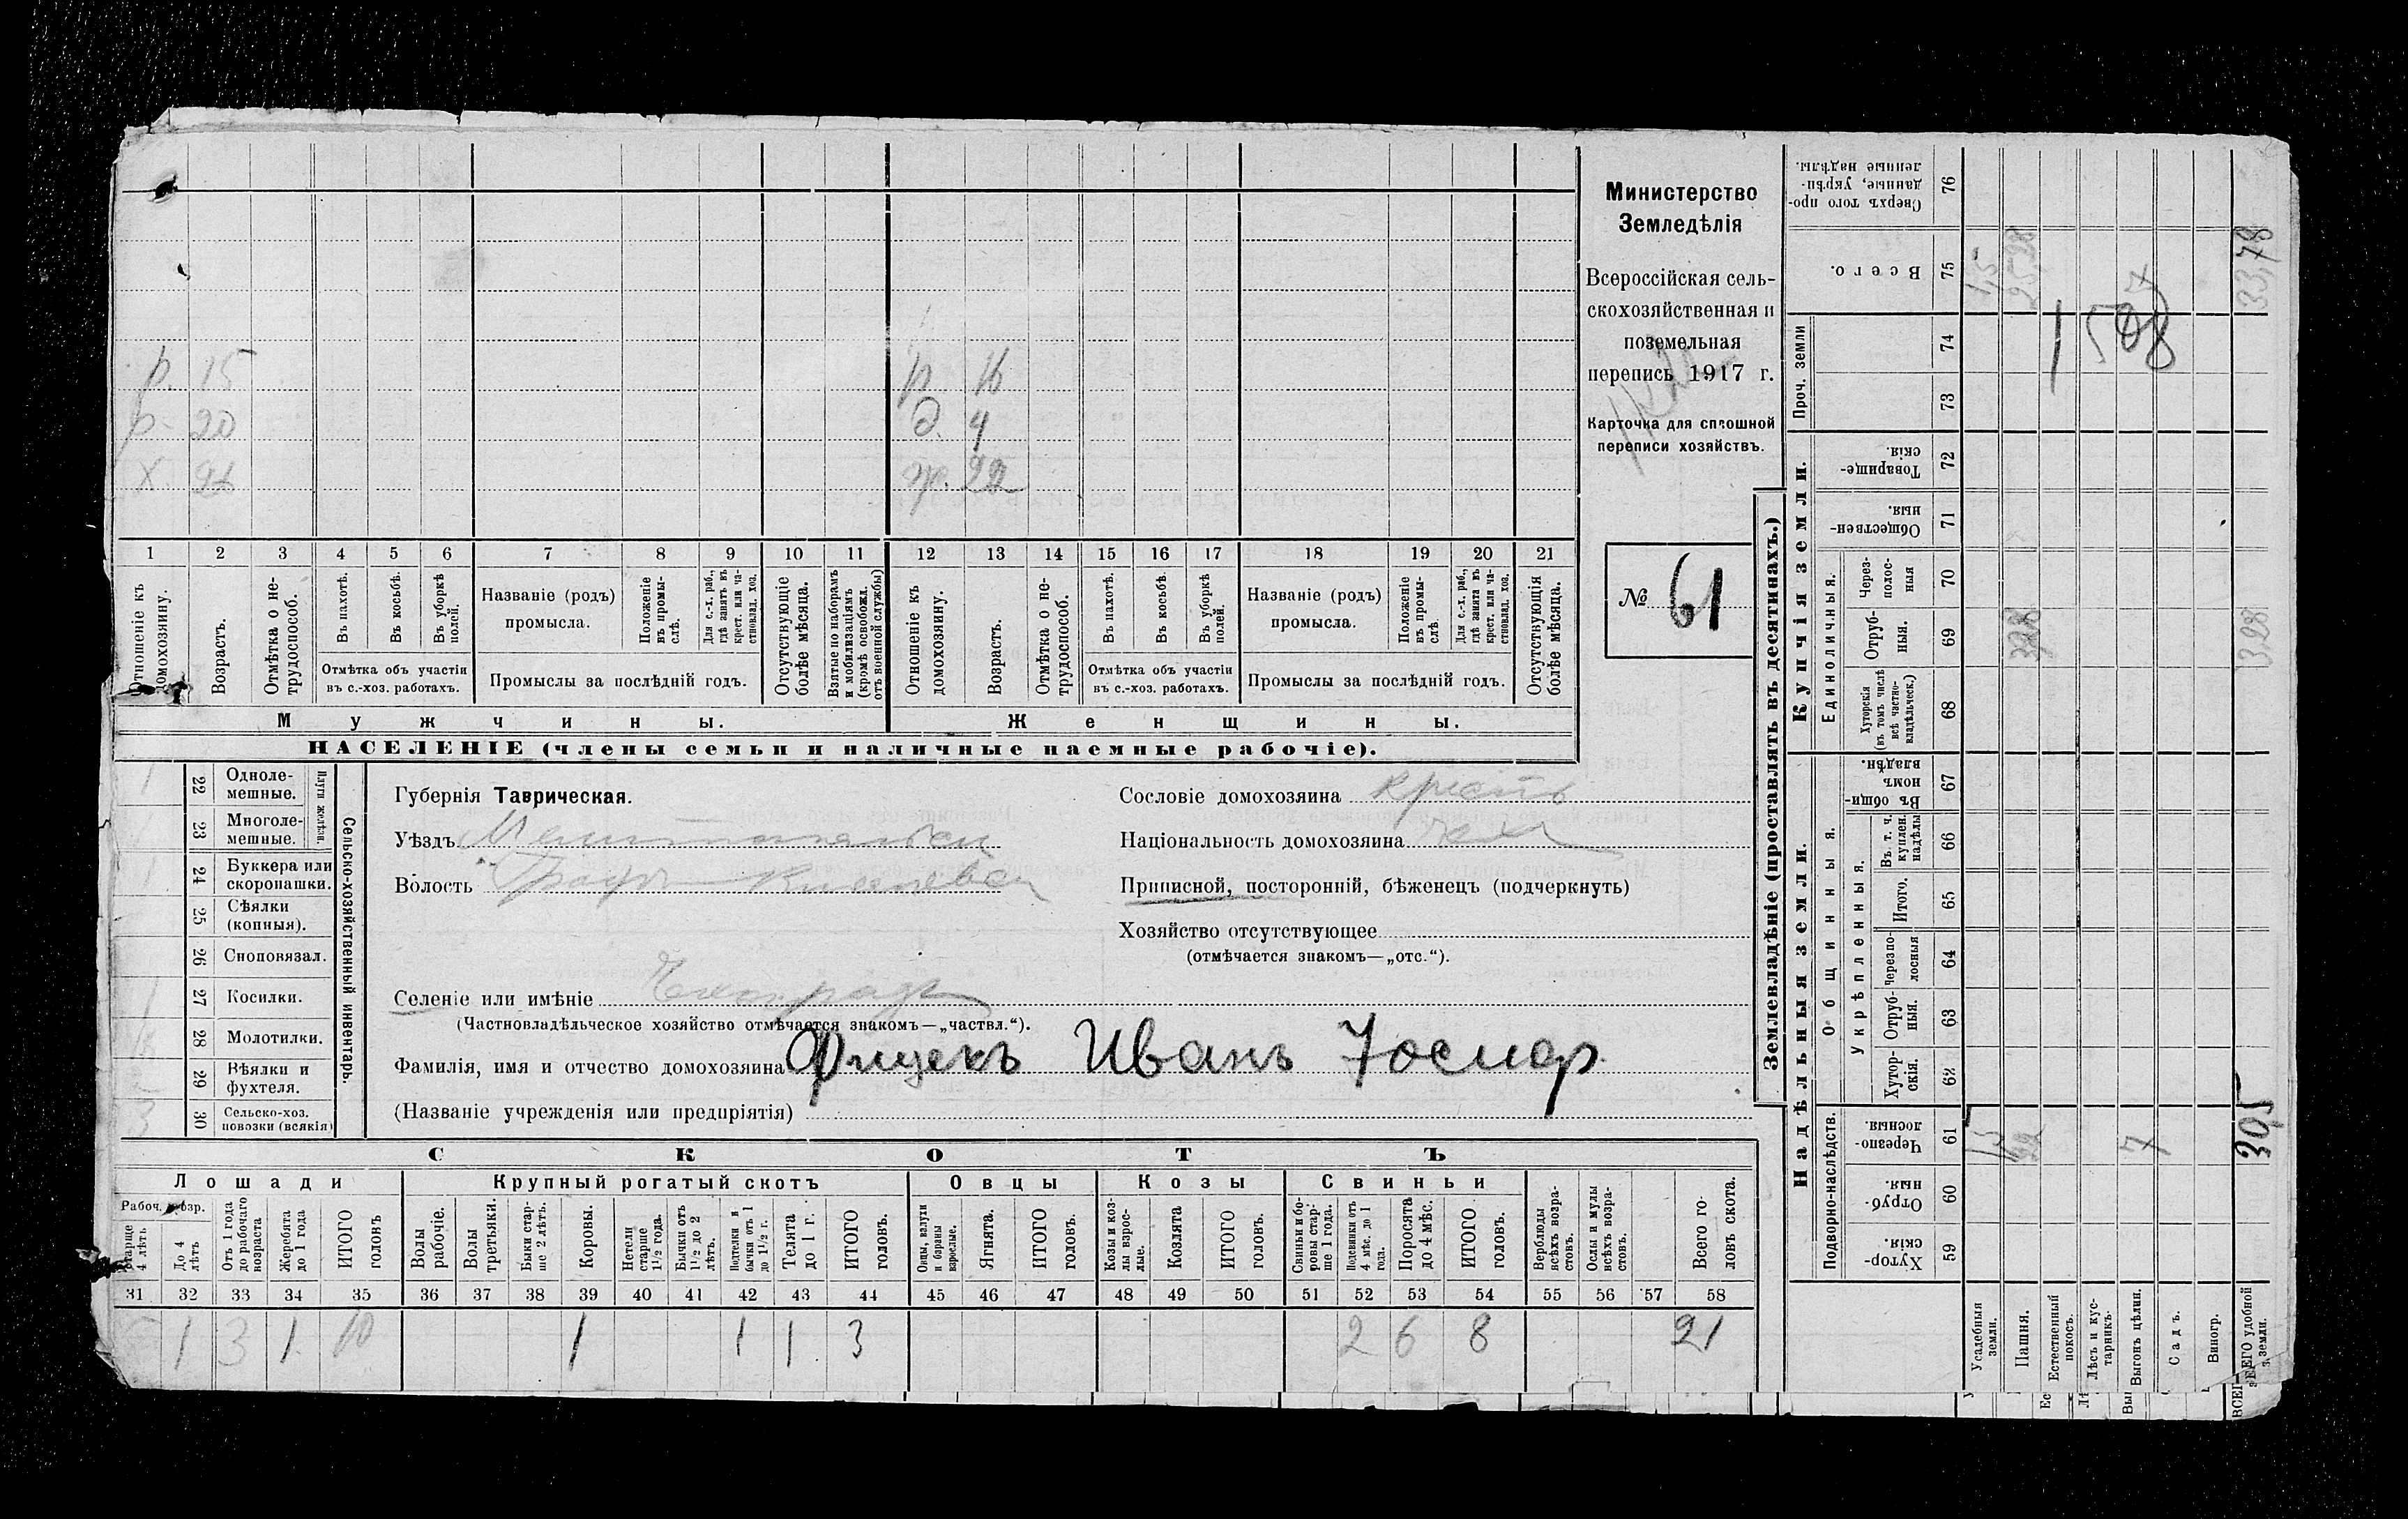 р. 15 р 16
р. 20 д. 4
х. ж. 22
1 2 3 4 5 6 7 8 9 10 11 12 13 14 15 16 17 18 19 20 21
Отношеніе къ домохозяину.
Возрастъ.
Отмѣтка о не-
трудоспособ.
Въ пахотѣ.
Въ косьбѣ.
Въ уборкѣ
полей.
Отмѣтка объ участіи
въ с.-хоз. работахъ.
Названіе (родъ)
промысла.
Положеніе
въ промы-
слѣ.
Для с.-х. раб.,
гдѣ занятъ въ
крест. или ча-
стновлад. хоз.
Промыслы за послѣдній годъ.
Отсутствующіе
болѣе мѣсяца.
Взятые по наборамъ
и мобилизаціямъ
(кромѣ освобожд.
отъ военной службы)
Отношеніе къ
домохозяину.
Возрастъ.
Отмѣтка о не-
трудоспособ.
Въ пахотѣ.
Въ косьбѣ.
Въ уборкѣ
полей.
Отмѣтка объ участіи
въ с.-хоз. работахъ.
Названіе (родъ)
промысла.
Положеніе
въ промы-
слѣ.
Для с.-х. раб.,
гдѣ занята въ
крест. или ча-
стновлад. хоз.
Промыслы за послѣдній годъ.
Отсутствующія
болѣе мѣсяца.
Мужчины. Женщины.
НАСЕЛЕНІЕ (члены семьи и наличные наемные рабочіе).
Министерство
Земледѣлія
Всероссійская сель-
скохозяйственная и
поземельная
перепись 1917 г.
Карточка для сплошной
переписи хозяйствъ.
№ 61
22 Одноле-
мешные.
23 Многоле-
мешные.
Плуги желѣзн.
24 Буккера или
скоропашки.
25 Сѣялки
(конныя).
26 Сноповязал.
27 Косилки.
28 Молотилки.
29 Вѣялки и
фухтеля.
3 30 Сельско-хоз.
повозки (всякія)
Сельско-хозяйственный инвентарь.
Губернія Таврическая.
Уѣздъ Мелитопольск
Волость
Селеніе или имѣніе Чехоградъ
(Частновладѣльческое хозяйство отмѣчается знакомъ—„частвл.“).
Фамилія, имя и отчество домохозяина Фицекъ Иванъ Іосиф.
(Названіе учрежденія или предпріятія)
Сословіе домохозяина крест
Національность домохозяина чехъ
Приписной, посторонній, бѣженецъ (подчеркнуть)
Хозяйство отсутствующее
(отмѣчается знакомъ—„отс.“).
СКОТЪ
Лошади Крупный рогатый скотъ Овцы Козы Свиньи
Рабоч. возр.
старше
4 лѣтъ
До 4
лѣтъ
Отъ 1 года
до рабочаго
возраста
Жеребята
до 1 года
ИТОГО
головъ
Волы
рабочіе.
Волы
третьяки.
Быки стар-
ше 2 лѣтъ.
Коровы.
Нетели
старше
1½ года.
Бычки отъ
1½ до 2
лѣтъ.
Подтелки и
бычки отъ 1
до 1½ г.
Телята
до 1 г.
ИТОГО
головъ.
Овцы, валухи
и бараны
взрослые.
Ягнята.
ИТОГО
головъ.
Козы и коз-
лы взрос-
лые.
Козлята
ИТОГО
головъ.
Свиньи и бо-
ровы стар-
ше 1 года.
Подсвинки отъ
4 мѣс. до 1
года.
Поросята
до 4 мѣс.
ИТОГО
головъ.
Верблюды
всѣхъ возра-
стовъ.
Ослы и мулы
всѣхъ возра-
стовъ.
Всего го-
ловъ скота.
31 32 33 34 35 36 37 38 39 40 41 42 43 44 45 46 47 48 49 50 51 52 53 54 55 56 57 58
1 3 1 10 1 1 1 3 2 6 8 21
Землевладѣніе (проставлять въ десятинахъ.)
Надѣльныя земли. Купчія земли. Проч. земли
Подворно-наслѣдств.
Общинныя.
Укрѣпленныя.
Единоличныя.
76 Сверхъ того про-
данные, укрѣп-
ленные надѣлы.
75 Всего.
74
73
72 Товарище-
скія.
71 Обществен-
ныя.
70 Через-
полос-
ныя
69 Отруб-
ныя.
68 Хуторскія
(въ томъ числѣ
всѣ частно-
владѣльческ.)
67 Въ общи-
номъ
владѣн.
66 Въ т. ч.
куплен.
надѣлы
65 Итого.
64 Черезпо-
лосныя
63 Отруб-
ныя.
62 Хутор-
скія.
61 Черезпо-
лосныя.
60 Отруб-
ныя.
59 Хутор-
скія.
Усадебныя
земли.
Пашня.
Естественный
покосъ.
Лѣсъ и кус-
тарникъ.
Выгонъ цѣлин.
Садъ.
Виногр.
ВСЕГО удобной
земли.
1,5 25,28 33,78
3,28 3,28
1,5 22 7 30,5